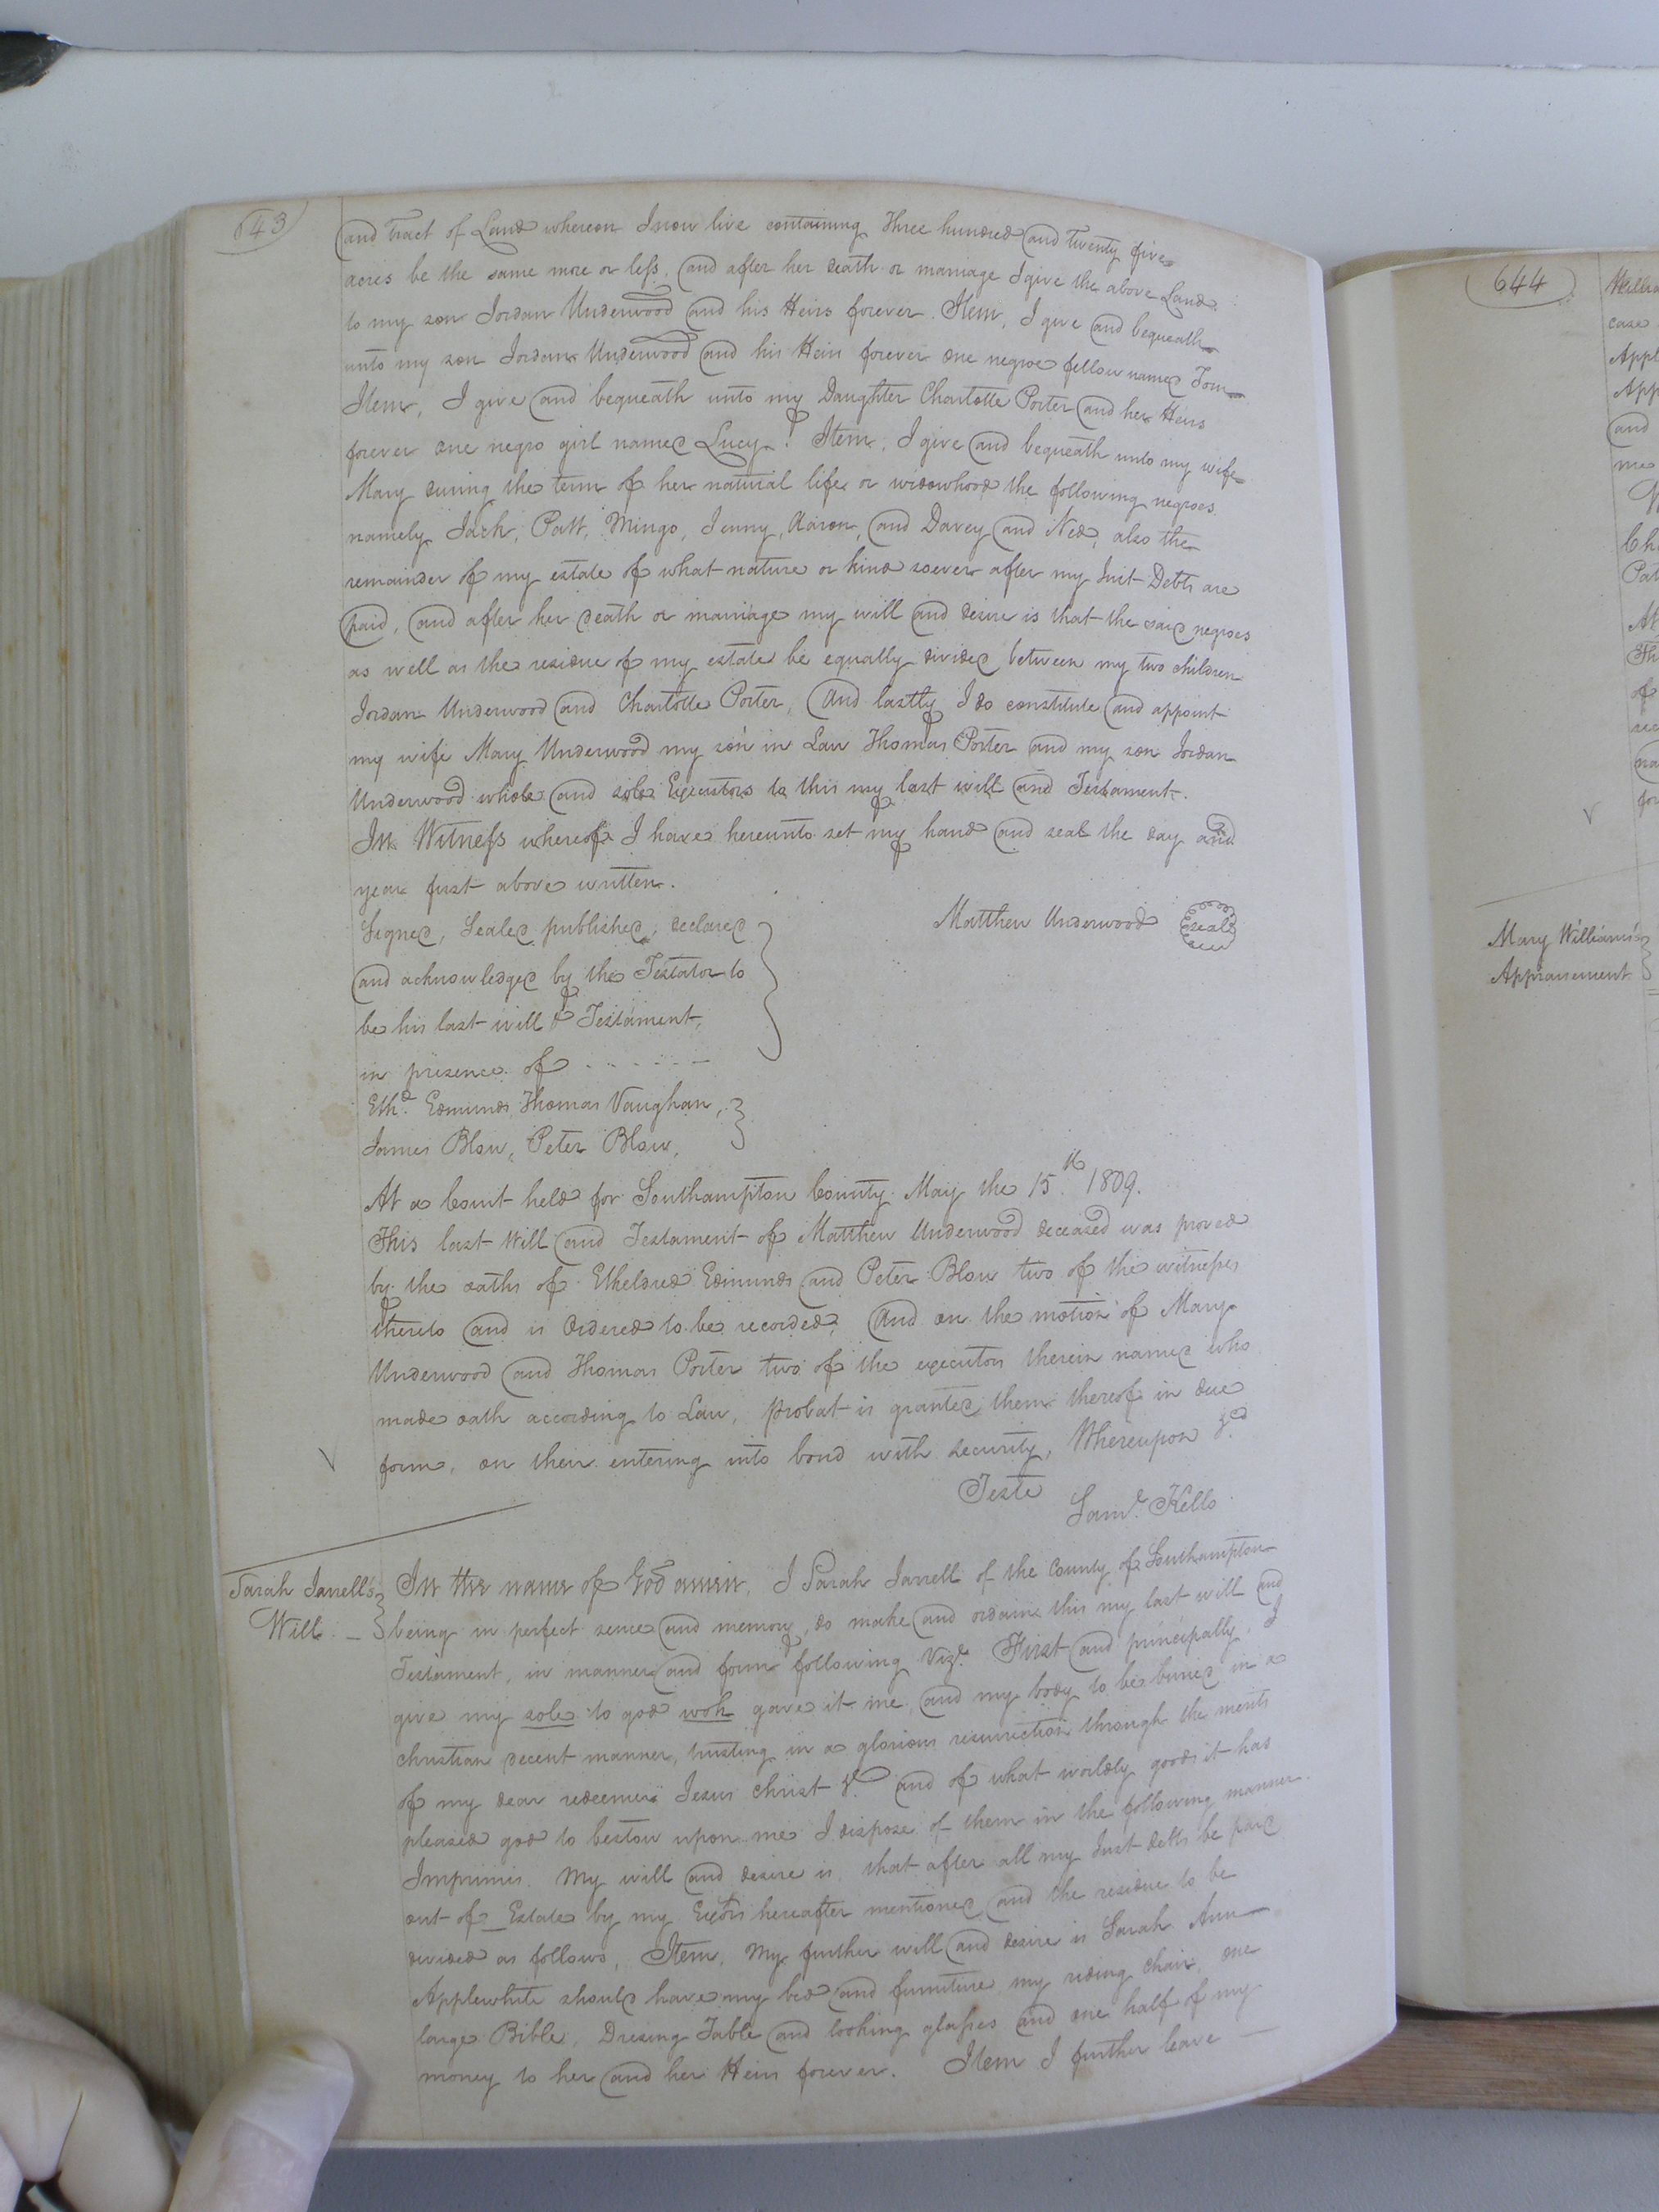 643
and Tract of Land whereon I now live containing Three hundred and Twenty five
acres be the same more or less, and after her death or marriage I give the above Land
to my son Jordan Underwood and his Heirs forever. Item, I give and bequeath
unto my son Jordan Underwood and his Heirs forever one negroe fellow named Tom
Item, I give and bequeath unto my Daughter Charlotte Porter and her Heirs
forever one negro girl named Lucy. Item, I give and bequeath unto my wife
Mary during the term of her natural life or widowhood the following negroes
namely Jack, Patt, Mingo, Jenny, Aaron, and Davey and Ned, also the
remainder of my estate of what nature or kind soever after my Just Debts are
paid, and after her death or marriage my will and desire is that the said negroes
as well as the residue of my estate be equally divided between my two children
Jordan Underwood and Charlotte Porter, And lastly I do constitute and appoint
my wife Mary Underwood my son in Law Thomas Porter and my son Jordan
Underwood whole and sole Executors to this my last will and Testament.
In Witness whereof I have hereunto set my hand and seal the day and
year first above written.
Signed, Sealed published, declared
and acknowledged by the Testator to
be his last will & Testament,
in presence of
Matthew Underwood seal
Ethd. Edmunds, Thomas Vaughan,
James Blow, Peter Blow,
At a Court held for Southampton County May the 15th. 1809.
This last Will and Testament of Matthew Underwood deceased was proved
by the oaths of Etheldred Edmunds and Peter Blow two of the witnesses
thereto and is Ordered to be recorded, And on the motion of Mary
Underwood and Thomas Porter two of the executors therein named who
made oath according to Law, probat is granted them thereof in due
form, on their entering into bond with security, Whereupon &c
Teste
Saml. Kello
Sarah Jarrell's
Will. —
In the name of God amen, I Sarah Jarrell of the County of Southampton
being in perfect sence and memory, do make and ordaine this my last will and
Testament, in manner and form following Vizt. First and principally, I
give my sole to god woh gave it me, and my body to be buried in a
christian decent manner, trusting in a glorious resurrection through the merits
of my dear redeemer Jesus Christ &c. and of what worldly goods it has
pleased god to bestow upon me I dispose of them in the following manner.
Imprimis. My will and desire is, that after all my Just debts be paid
out of _ Estate by my Exōrs hereafter mentioned and the residue to be
devided as follows, Item, My further will and desire is Sarah Ann
Applewhite should have my bed and furniture, my riding chair, one
large Bible, Dresing Table and looking glasses and one half of my
money to her and her Heirs forever. Item I further leave —
644
case
and
me
of
Mary Williams's
Appraisement